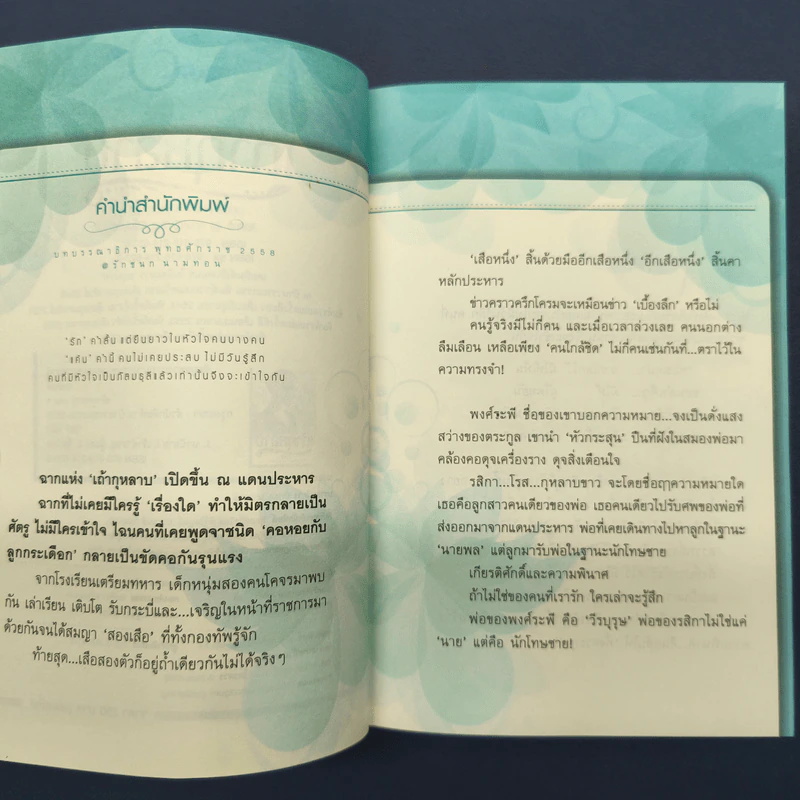 คำนำสำนักพิมพ์
บทบรรณาธิการ พุทธศักราช 2558
@รักชนก นามทอน
'รัก' คำสั้น แต่ยืนยาวในหัวใจคนบางคน
'แค้น' คำนี้ คนไม่เคยประสบ ไม่มีวันรู้สึก
คนที่มีหัวใจเป็นภัสมธุลีแล้วเท่านั้นจึงจะเข้าใจกัน
ฉากแห่ง 'เถ้ากุหลาบ' เปิดขึ้น ณ แดนประหาร
ฉากที่ไม่เคยมีใครรู้ 'เรื่องใด' ทำให้มิตรกลายเป็น
ศัตรู ไม่มีใครเข้าใจ ไฉนคนที่เคยพูดจาชนิด 'คอหอยกับ
ลูกกระเดือก' กลายเป็นขัดคอกันรุนแรง
จากโรงเรียนเตรียมทหาร เด็กหนุ่มสองคนโคจรมาพบ
กัน เล่าเรียน เติบโต รับกระบี่และ...เจริญในหน้าที่ราชการมา
ด้วยกันจนได้สมญา 'สองเสือ' ที่ทั้งกองทัพรู้จัก
ท้ายสุด...เสือสองตัวก็อยู่ถ้ำเดียวกันไม่ได้จริงๆ
'เสือหนึ่ง' สิ้นด้วยมืออีกเสือหนึ่ง 'อีกเสือหนึ่ง' สิ้นคา
หลักประหาร
ข่าวคราวครึกโครมจะเหมือนข่าว 'เบื้องลึก' หรือไม่
คนรู้จริงมีไม่กี่คน และเมื่อเวลาล่วงเลย คนนอกต่าง
ลืมเลือน เหลือเพียง 'คนใกล้ชิด' ไม่กี่คนเช่นกันที่...ตราไว้ใน
ความทรงจำ!
พงศ์ระพี ชื่อของเขาบอกความหมาย...จงเป็นดั่งแสง
สว่างของตระกูล เขานำ 'หัวกระสุน' ปืนที่ฝังในสมองพ่อมา
คล้องคอดุจเครื่องราง ดุจสิ่งเตือนใจ
รสิกา...โรส...กุหลาบขาว จะโดยชื่อฤๅความหมายใด
เธอคือลูกสาวคนเดียวของพ่อ เธอคนเดียวไปรับศพของพ่อที่
ส่งออกมาจากแดนประหาร พ่อที่เคยเดินทางไปหาลูกในฐานะ
'นายพล' แต่ลูกมารับพ่อในฐานะนักโทษชาย
เกียรติศักดิ์และความพินาศ
ถ้าไม่ใช่ของคนที่เรารัก ใครเล่าจะรู้สึก
พ่อของพงศ์ระพี คือ 'วีรบุรุษ' พ่อของรสิกาไม่ใช่แค่
'นาย' แต่คือ นักโทษชาย!